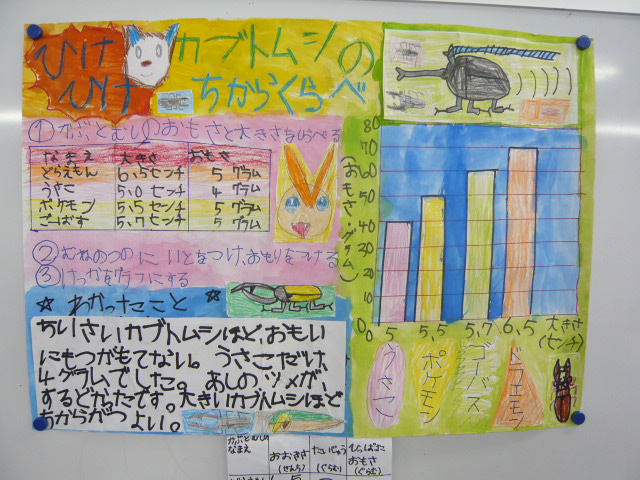 ひけ ひけ カブトムシの
ちからくらべ
①かぶとむしのおもさと大きさをしらべる
なまえ 大きさ おもさ
どらえもん 6,5センチ 5 グラム
うさこ 5,0センチ 4 グラム
ポケモン 5,5センチ 5 グラム
ごーばす 5,7センチ 5 グラム
②むねのつのに いとをつけ、おもりをつける
③けっかをグラフにする
☆ わかったこと ☆
ちいさいカブトムシほど、おもい
にもつがもてない。うさこだけ、
4グラムでした。あしのツメが、
するどかったです。大きいカブトムシほど
ちからがつよい。
80
70
60
50
40
30
20
10
0
(おもさ、グラム)
0 5 5,5 5,7 6,5 大きさ
(センチ)
うさこ
ポケモン
ゴーバス
ドラエモン
かぶとむしの
なまえ
おおきさ
(せんち)
たいじゅう
(ぐらむ)
ひっぱった
おもさ
(ぐらむ)